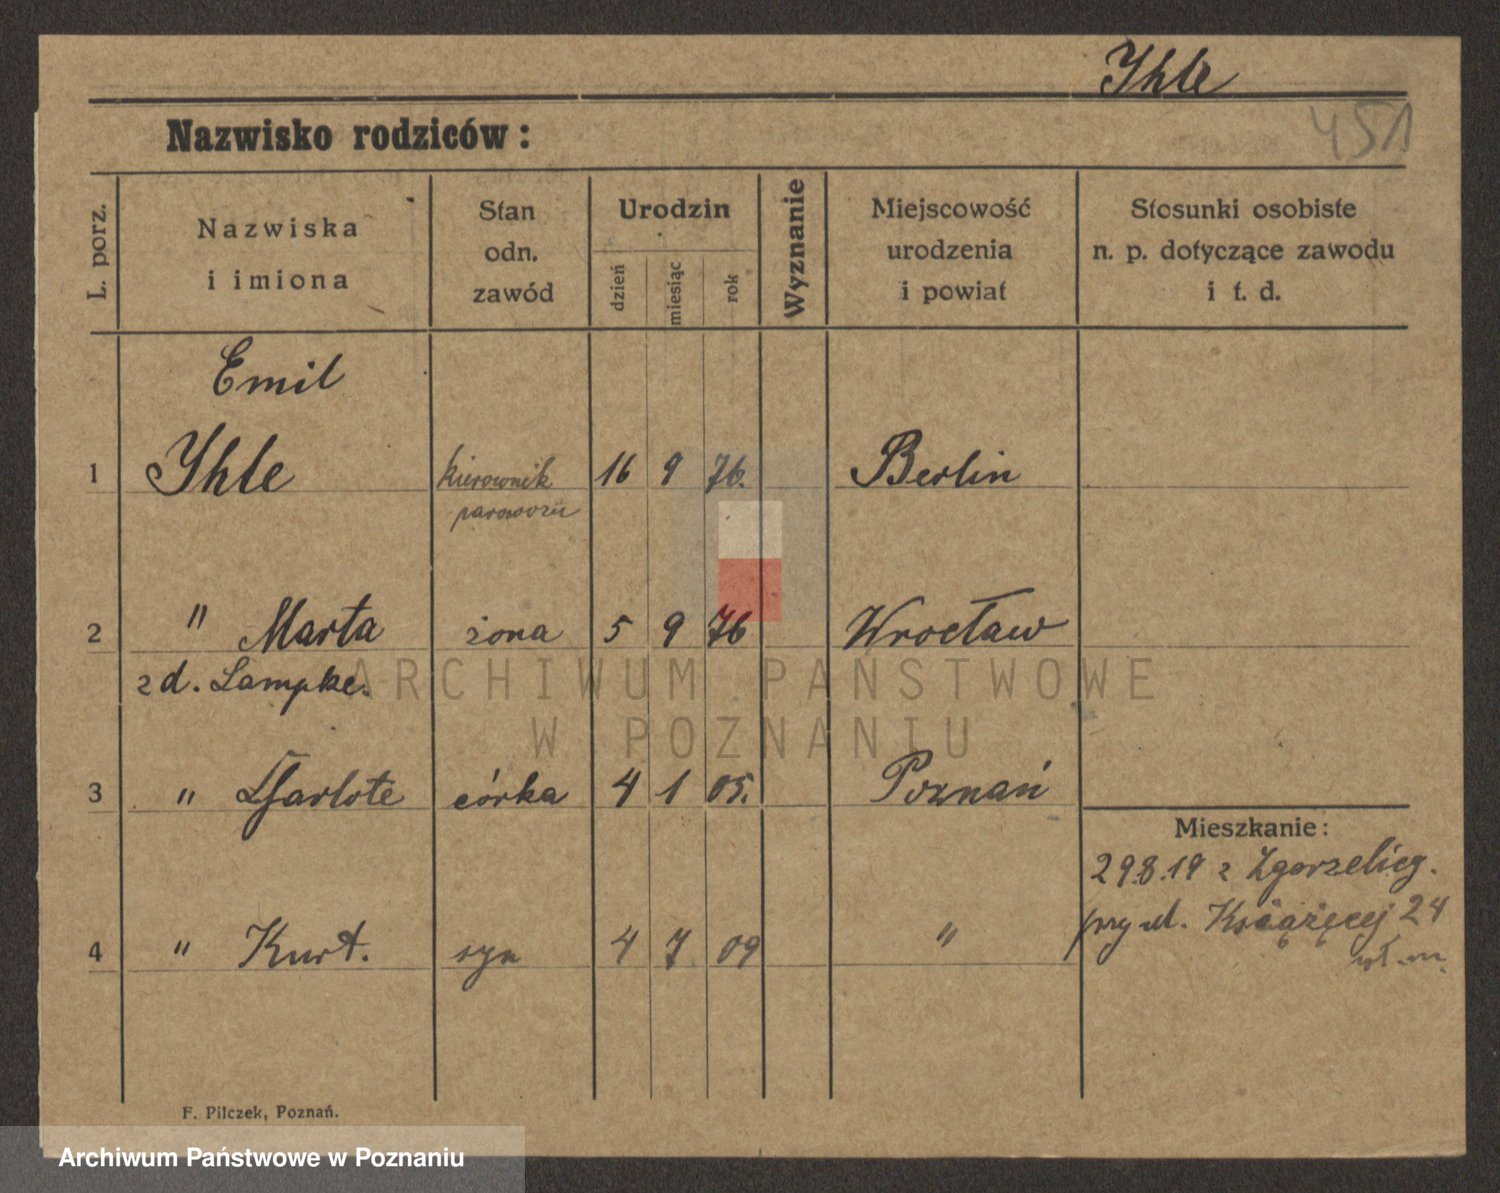 Ihle
451
Nazwisko rodziców:
L. porz.
Nazwiska
i imiona
Stan
odn.
zawód
Urodzin
dzień
miesiąc
rok
Wyznanie
Miejscowość
urodzenia
i powiat
Stosunki osobiste
n. p. dotyczące zawodu
i t. d.
Emil
1 Ihle kierownik 16 9 76. Berlin
parowozu
2 " Marta żona 5 9 76 Wrocław
z d. Lampke.
3 " Charlote córka 4 1 05. Poznań
Mieszkanie:
29.8.19 z Zgorzelicy.
przy ul. Książęcej 24
4 " Kurt. syn 4 7 09 "
F. Pilczek, Poznań.
ARCHIWUM PAŃSTWOWE
W POZNANIU
Archiwum Państwowe w Poznaniu